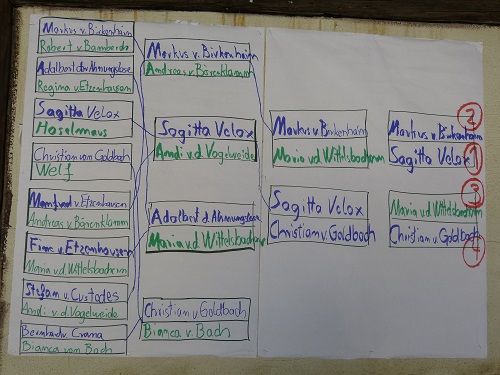 Markus v. Birkenhaim
Robert v. Bamberda
Adalbert der Ahnungslose
Regina v. Etzenhausen
Sagitta Velox
Haselmaus
Christian vom Goldbach
Welf
v. Etzenhausen
Andreas v. Bärenklamm
Finn v. Etzenhausen
Maria v.d Wittelsbacherin
Stefan v. Custodes
Andi v. d Vogelweide
Crama
Bianca vom Bach
Markus v. Birkenhaim
Andreas v. Bärenklamm
Sagitta Velox
Andi v.d Vogelweide
Adalbert d. Ahnungslose
Maria vd Wittelsbacherin
Christian v. Goldbach
Bianca v. Bach
Markus v Birkenhaim
Maria vd Wittelsbacherin
Sagitta Velox
Christian v. Goldbach
Markus v. Birkenhaim
2
Sagitta Velox
1
3
Maria v d Wittelsbacherin
Christian v. Goldbach
4